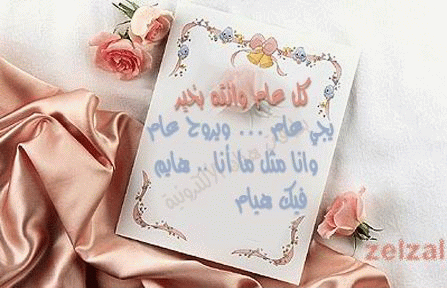 كل عام وانته بخير
يجي عام ... ويروح عام
وانا مثل ما أنا هايم
فيك هيام
zelzal